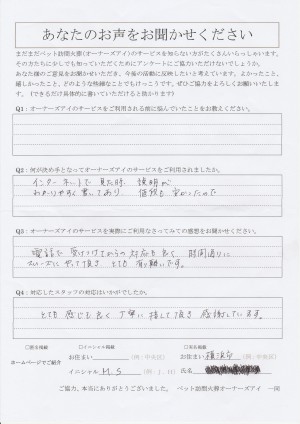 あなたのお声をお聞かせください
まだまだペット訪問火葬(オーナーズアイ)のサービスを知らない方がたくさんいらっしゃいます。
その方たちに少しでも知っていただくためにアンケートにご協力いただけないでしょうか。
あなた様のご意見をお聞かせいただき、今後の活動に反映したいと考えています。よかったこと、
嬉しかったこと、どのような些細なことでもけっこうです。ぜひご協力をよろしくお願いいたしま
す。(できるだけ具体的に書いていただけると助かります)
Q1：オーナーズアイのサービスをご利用される前に悩んでいたことをお教えください。
Q2：何が決め手となってオーナーズアイのサービスをご利用されましたか。
インターネットで見た時、説明が
わかりやすく書いてあり 値段も安かったので
Q3：オーナーズアイのサービスを実際にご利用なさってみての感想をお聞かせください。
電話で受けつけてからの対応も良く 時間通りに
スムーズに やって頂き とても 有り難いです。
Q4：対応したスタッフの対応はいかがでしたか。
とても 感じも良く 丁寧に 接して頂き 感謝しています。
ホームページでご紹介
□匿名掲載 □イニシャル掲載 □実名掲載
お住まい (例：中央区) お住まい 横浜市 (例：中央区)
イニシャル M.S (例：J．H) 氏名
ご協力、本当にありがとうございました。 ペット訪問火葬オーナーズアイ 一同